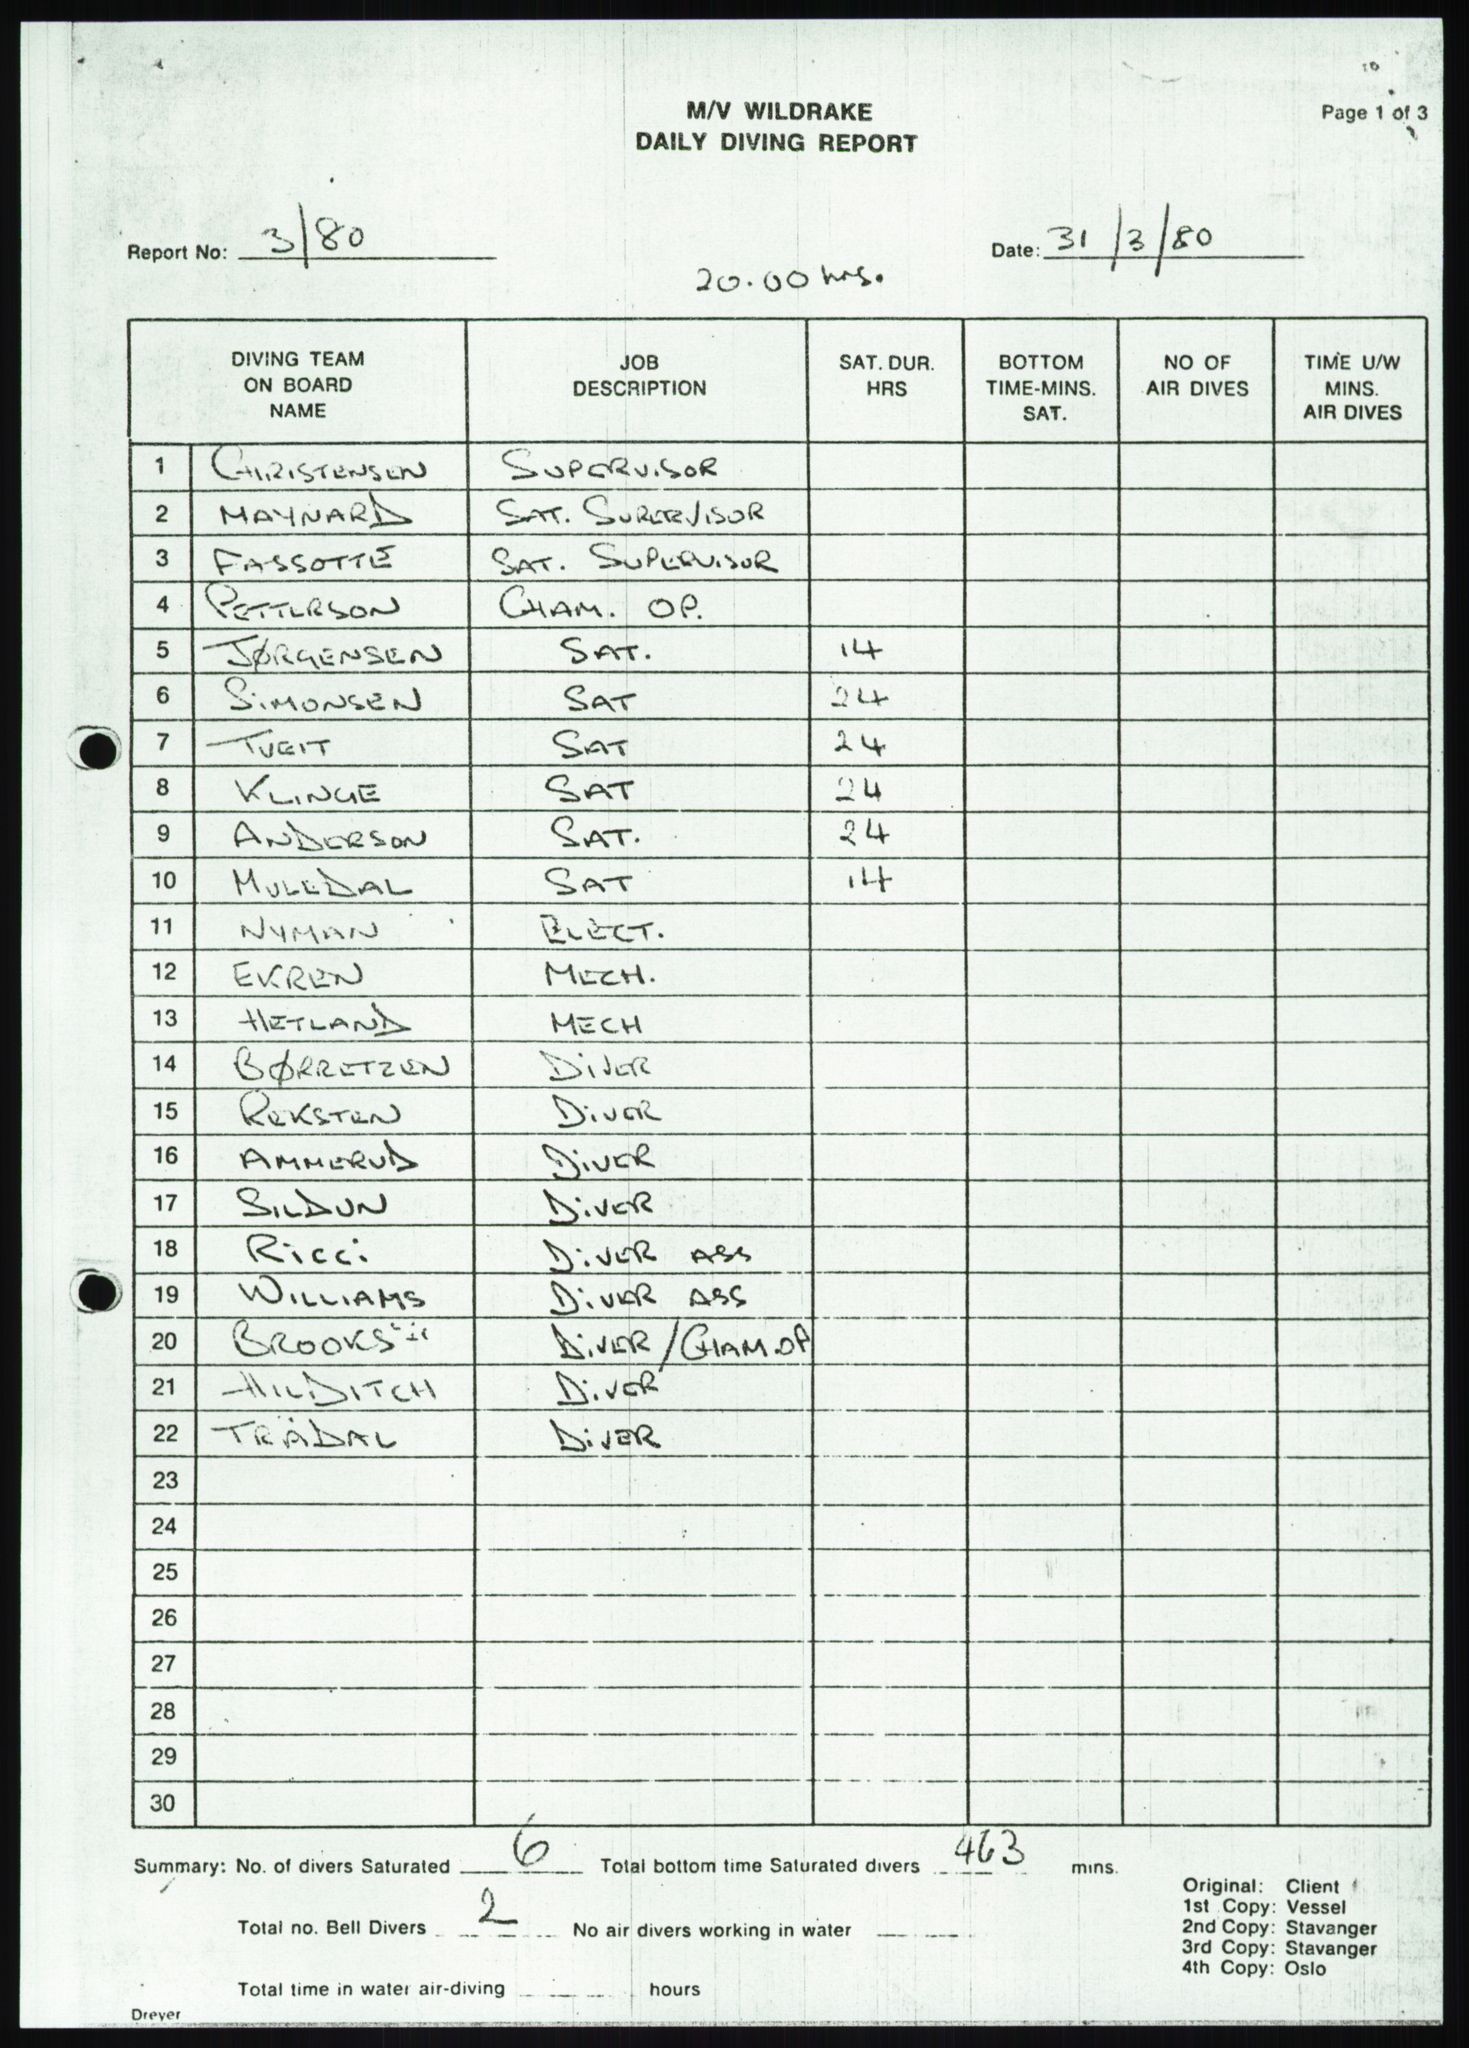 M/V WILDRAKE
DAILY DIVING REPORT
Page 1 of 3
Report No: 3/80
Date: 31/3/80
20.00 hrs.
DIVING TEAM ON BOARD NAME | JOB DESCRIPTION | SAT. DUR. HRS | BOTTOM TIME-MINS. SAT. | NO OF AIR DIVES | TIME U/W MINS. AIR DIVES
1 CHRISTENSEN SUPERVISOR
2 MAYNARD SAT. SUPERVISOR
3 FASSOTTE SAT. SUPERVISOR
4 PETTERSON CHAM. OP.
5 JØRGENSEN SAT. 14
6 SIMONSEN SAT 24
7 TVEIT SAT 24
8 KLINGE SAT 24
9 ANDERSON SAT. 24
10 MULEDAL SAT 14
11 NYMAN ELECT.
12 EKREN MECH.
13 HETLAND MECH
14 BØRRETZEN DIVER
15 REKSTEN DIVER
16 AMMERUD DIVER
17 SILDUN DIVER
18 RICCI DIVER ASS
19 WILLIAMS DIVER ASS
20 BROOKS DIVER/CHAM.OP
21 HILDITCH DIVER
22 TRÅDAL DIVER
23
24
25
26
27
28
29
30
Summary: No. of divers Saturated 6 Total bottom time Saturated divers 463 mins.
Total no. Bell Divers 2 No air divers working in water
Total time in water air-diving hours
Original: Client
1st Copy: Vessel
2nd Copy: Stavanger
3rd Copy: Stavanger
4th Copy: Oslo
Dreyer